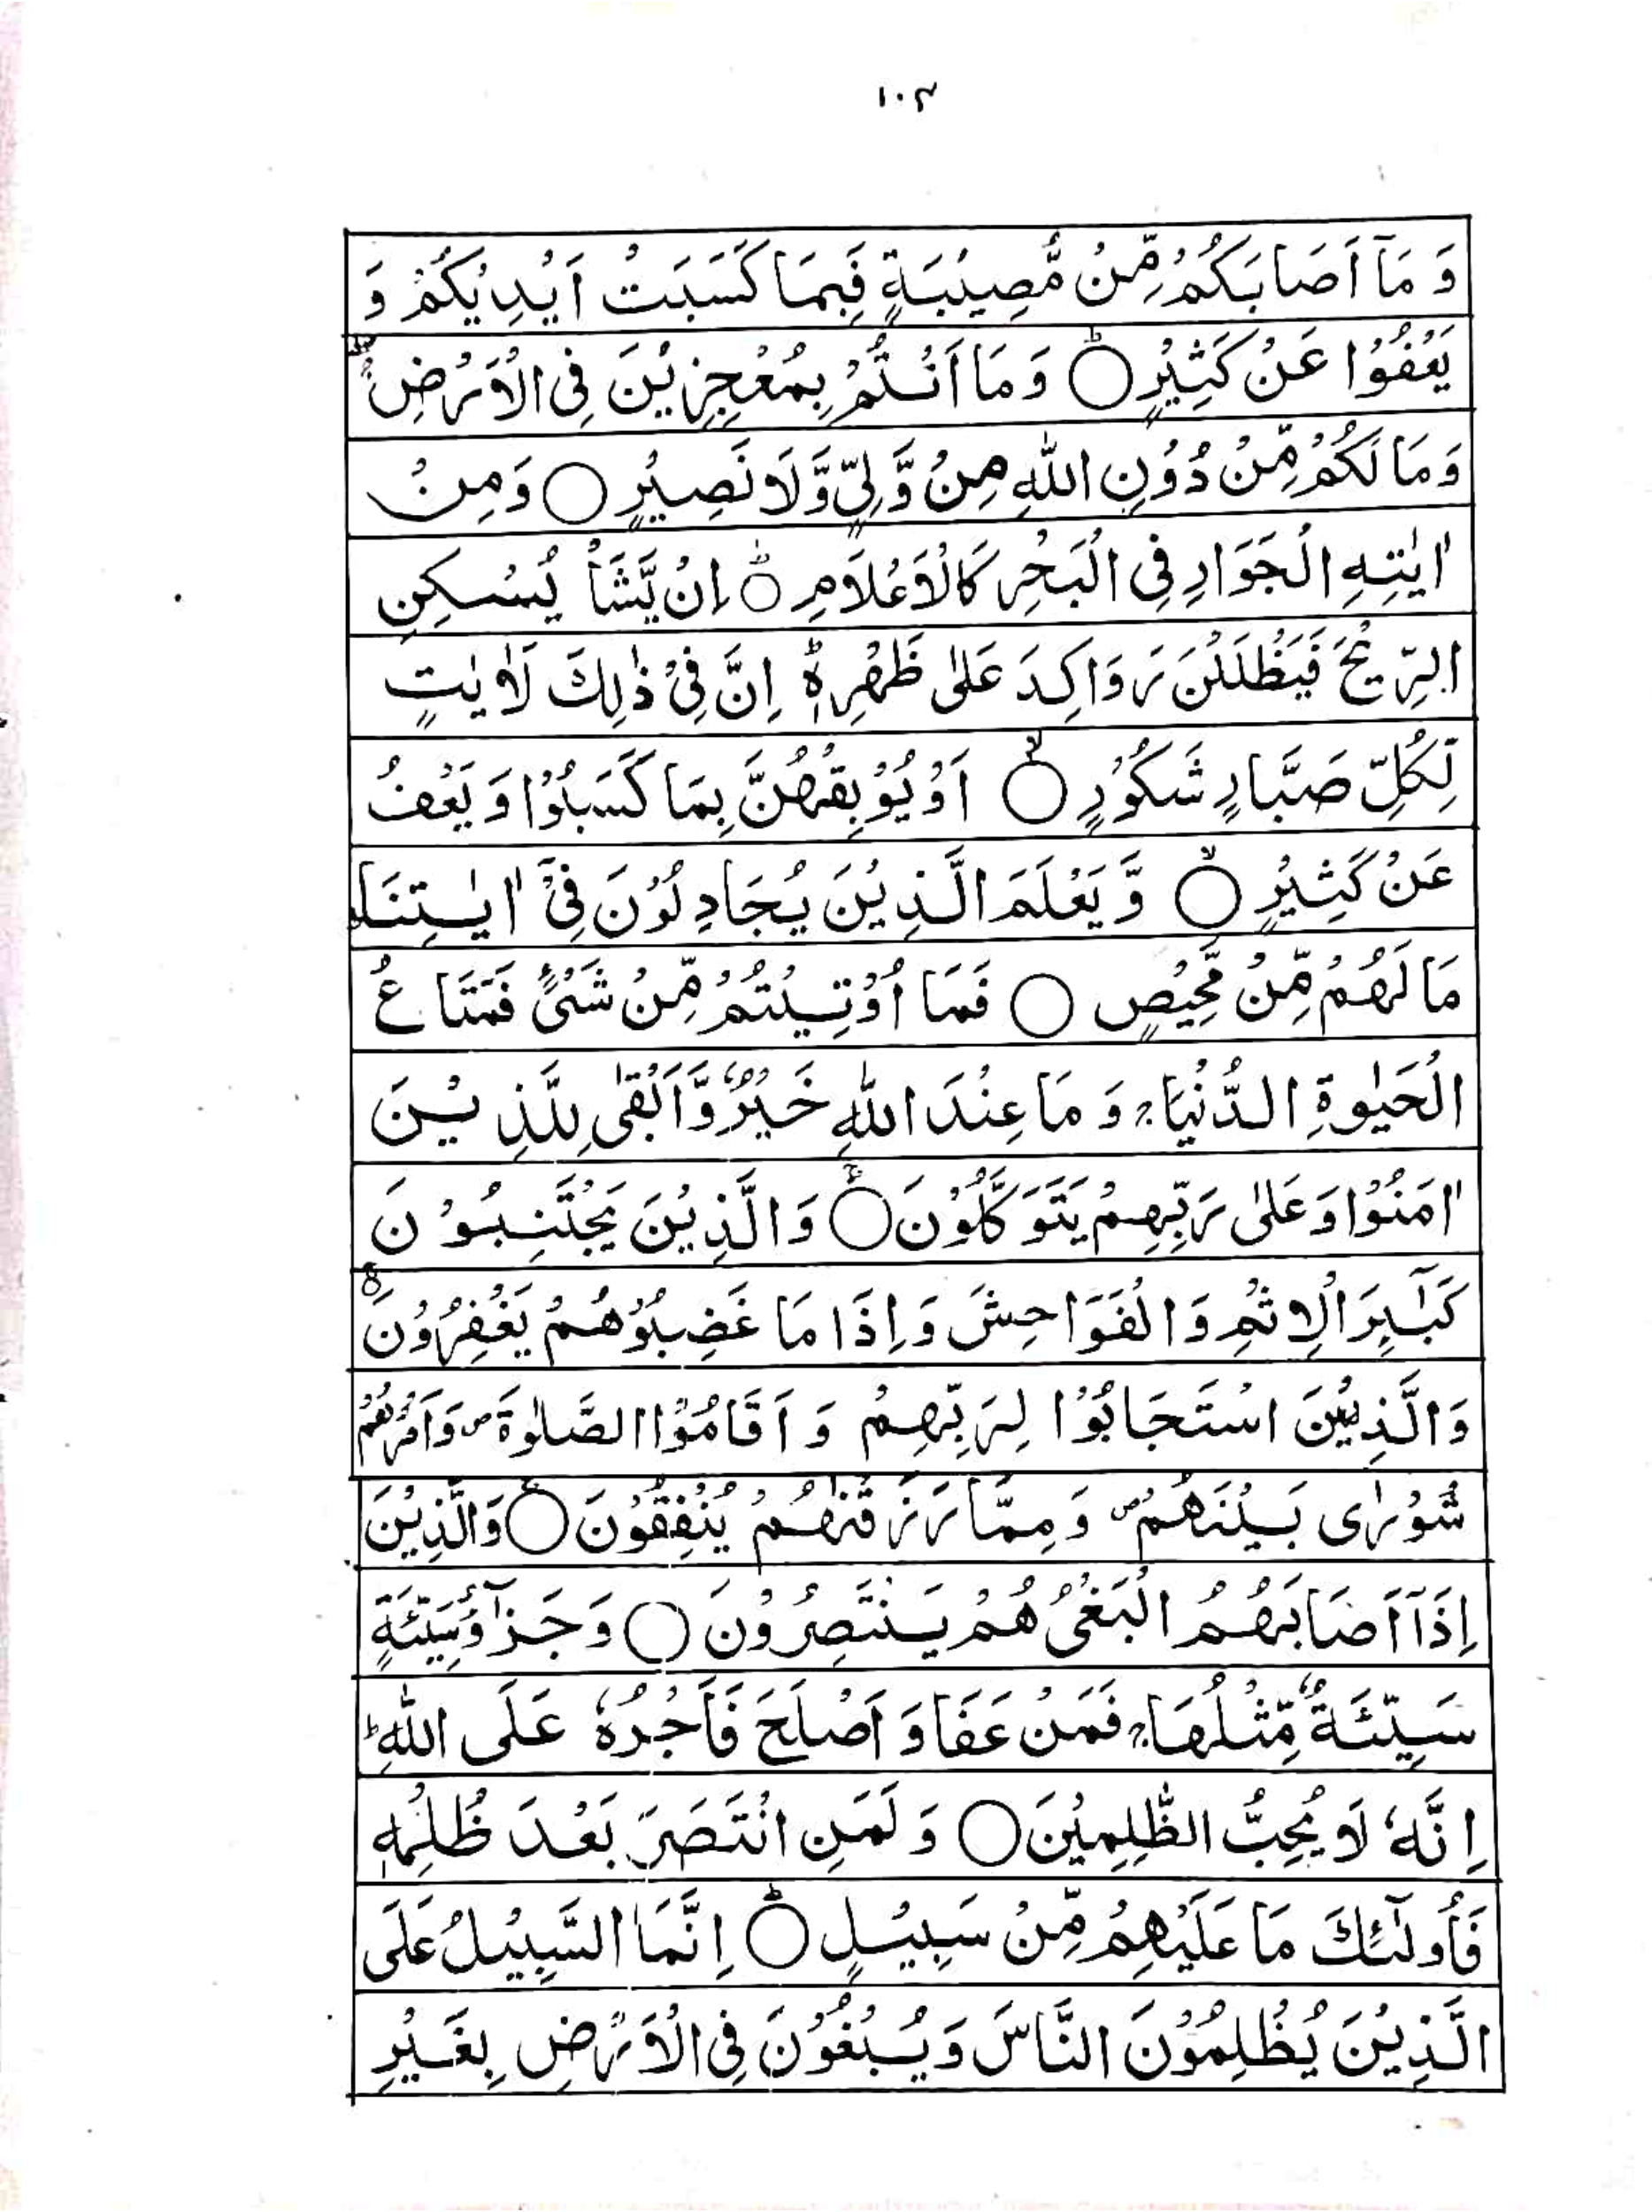 ١٠٣
وَ مَآ اَصَابَكُمْ مِّنْ مُّصِيْبَةٍ فَبِمَا كَسَبَتْ اَيْدِيْكُمْ وَ
يَعْفُوْا عَنْ كَثِيْرٍ ○ؕ وَ مَا اَنْتُمْ بِمُعْجِزِيْنَ فِى الْاَرْضِ
وَ مَا لَكُمْ مِّنْ دُوْنِ اللّٰهِ مِنْ وَّلِيٍّ وَّلَا نَصِيْرٍ ○ وَ مِنْ
اٰيٰتِهِ الْجَوَارِ فِى الْبَحْرِ كَالْاَعْلَامِ ○ؕ اِنْ يَّشَاْ يُسْكِنِ
الرِّيْحَ فَيَظْلَلْنَ رَوَاكِدَ عَلٰى ظَهْرِهٖؕ اِنَّ فِيْ ذٰلِكَ لَاٰيٰتٍ
لِّكُلِّ صَبَّارٍ شَكُوْرٍ ○ۙ اَوْ يُوْبِقْهُنَّ بِمَا كَسَبُوْا وَ يَعْفُ
عَنْ كَثِيْرٍ ○ۙ وَّ يَعْلَمَ الَّذِيْنَ يُجَادِلُوْنَ فِيْٓ اٰيٰتِنَاؕ
مَا لَهُمْ مِّنْ مَّحِيْصٍ ○ فَمَا اُوْتِيْتُمْ مِّنْ شَيْءٍ فَمَتَاعُ
الْحَيٰوةِ الدُّنْيَاۚ وَ مَا عِنْدَ اللّٰهِ خَيْرٌ وَّ اَبْقٰى لِلَّذِيْنَ
اٰمَنُوْا وَ عَلٰى رَبِّهِمْ يَتَوَكَّلُوْنَ ○ۚ وَ الَّذِيْنَ يَجْتَنِبُوْنَ
كَبٰٓئِرَ الْاِثْمِ وَ الْفَوَاحِشَ وَ اِذَا مَا غَضِبُوْا هُمْ يَغْفِرُوْنَ
وَ الَّذِيْنَ اسْتَجَابُوْا لِرَبِّهِمْ وَ اَقَامُوْا الصَّلٰوةَ۪ وَ اَمْرُهُمْ
شُوْرٰى بَيْنَهُمْ۪ وَ مِمَّا رَزَقْنٰهُمْ يُنْفِقُوْنَ ○ۚ وَ الَّذِيْنَ
اِذَآ اَصَابَهُمُ الْبَغْيُ هُمْ يَنْتَصِرُوْنَ ○ وَ جَزٰٓؤُ سَيِّئَةٍ
سَيِّئَةٌ مِّثْلُهَاۚ فَمَنْ عَفَا وَ اَصْلَحَ فَاَجْرُهٗ عَلَى اللّٰهِؕ
اِنَّهٗ لَا يُحِبُّ الظّٰلِمِيْنَ ○ وَ لَمَنِ انْتَصَرَ بَعْدَ ظُلْمِهٖ
فَاُولٰٓئِكَ مَا عَلَيْهِمْ مِّنْ سَبِيْلٍ ○ؕ اِنَّمَا السَّبِيْلُ عَلَى
الَّذِيْنَ يَظْلِمُوْنَ النَّاسَ وَ يَبْغُوْنَ فِى الْاَرْضِ بِغَيْرِ